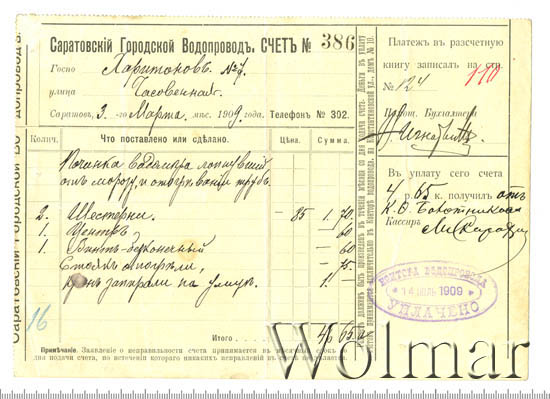 Саратовскій Городской Водопроводъ. СЧЕТЪ № 386
Госпо Харитоновъ №7.
улица Часовенная.
Саратовъ, 3-го Марта мѣс. 1909 года. Телефонъ № 302.
Колич. Что поставлено или сдѣлано. Цѣна. Сумма.
Починка водомѣра лопнувшій
отъ мороза, и отогрѣваніи трубъ.
2. Шестерни. — 85 1 70
1. Центръ — 60
1. Винтъ безконечный — 60
Стоякъ отогрѣли, — 75
кранъ запирали на улицѣ. 1 —
16
Итого 4р 65
Примѣчаніе. Заявленіе о неправильности счета принимается въ срокъ со
дня подачи счета, по истеченіи котораго никакихъ
Платежъ въ разсчетную
книгу записалъ на стр. 110
№ 124
Бухгалтеръ
Въ уплату сего счета
4 р. 65 к. получилъ отъ
Кассира
КОНТОРА ВОДОПРОВОДА
14 1909
УПЛАЧЕНО
Саратовскій Городской
Wolmar